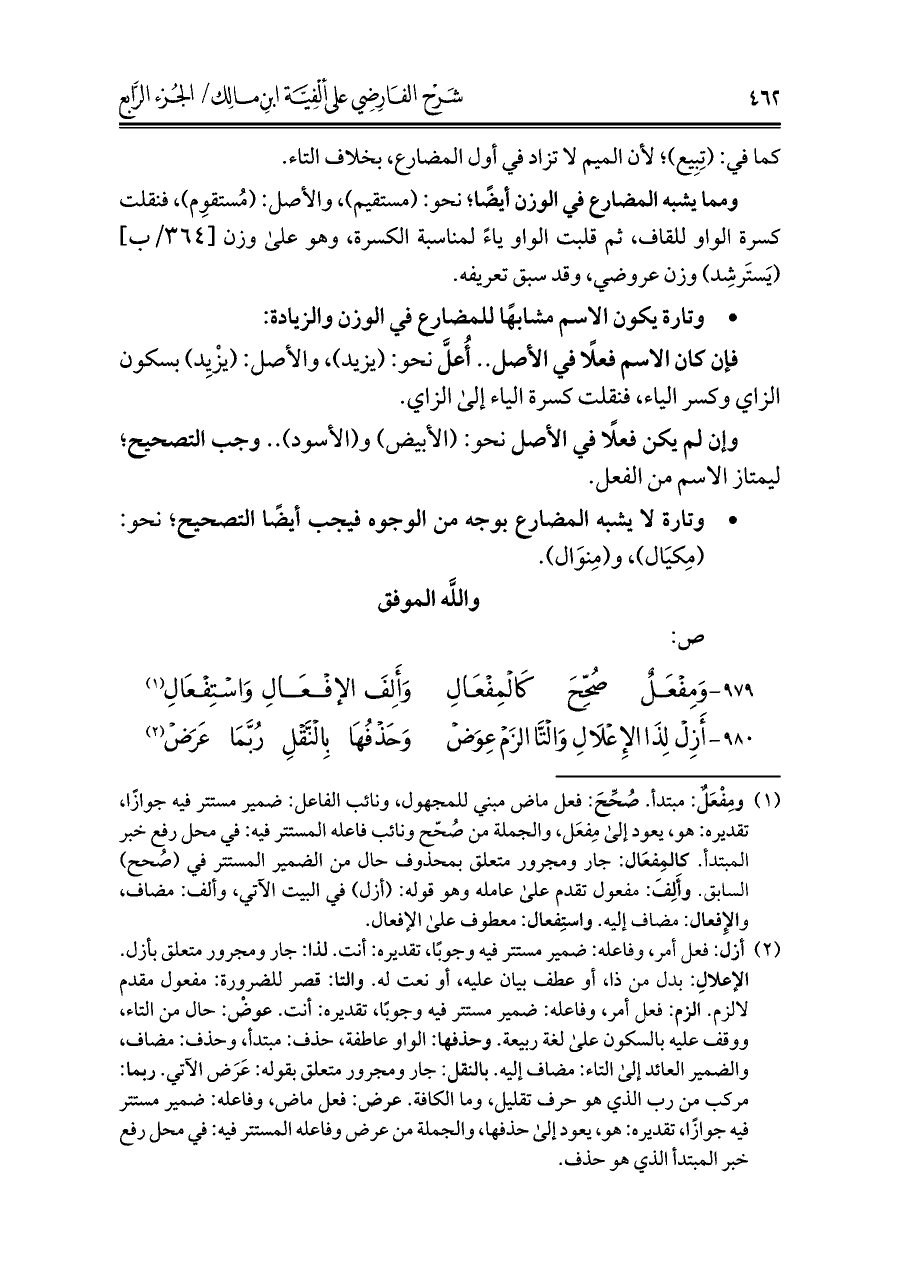 ٤٦٢ شرح الفارضي على ألفية ابن مالك / الجزء الرابع
كما في: (تِبِيع)؛ لأن الميم لا تزاد في أول المضارع، بخلاف التاء.
ومما يشبه المضارع في الوزن أيضًا؛ نحو: (مستقيم)، والأصل: (مُستقوِم)، فنقلت
كسرة الواو للقاف، ثم قلبت الواو ياءً لمناسبة الكسرة، وهو علىٰ وزن [٣٦٤/ ب]
(يَستَرشِد) وزن عروضي، وقد سبق تعريفه.
• وتارة يكون الاسم مشابهًا للمضارع في الوزن والزيادة:
فإن كان الاسم فعلًا في الأصل.. أُعلَّ نحو: (يزيد)، والأصل: (يزْيِد) بسكون
الزاي وكسر الياء، فنقلت كسرة الياء إلىٰ الزاي.
وإن لم يكن فعلًا في الأصل نحو: (الأبيض) و(الأسود).. وجب التصحيح؛
ليمتاز الاسم من الفعل.
• وتارة لا يشبه المضارع بوجه من الوجوه فيجب أيضًا التصحيح؛ نحو:
(مِكيَال)، و(مِنوَال).
واللَّه الموفق
ص:
٩٧٩- وَمِفْعَلٌ صُحِّحَ كَالْمِفْعَالِ وَأَلِفَ الإفْعَالِ وَاسْتِفْعَالِ(١)
٩٨٠- أَزِلْ لِذَا الإِعْلَالِ وَالتَّا الزَمْ عِوَضْ وَحَذْفُهَا بِالنَّقْلِ رُبَّمَا عَرَضْ(٢)
(١) ومِفْعَلٌ: مبتدأ. صُحِّحَ: فعل ماض مبني للمجهول، ونائب الفاعل: ضمير مستتر فيه جوازًا،
تقديره: هو، يعود إلىٰ مِفعَل، والجملة من صُحّح ونائب فاعله المستتر فيه: في محل رفع خبر
المبتدأ. كالمِفعَال: جار ومجرور متعلق بمحذوف حال من الضمير المستتر في (صُحح)
السابق. وأَلِفَ: مفعول تقدم علىٰ عامله وهو قوله: (أزل) في البيت الآتي، وألف: مضاف،
والإِفعال: مضاف إليه. واستِفعال: معطوف علىٰ الإفعال.
(٢) أزل: فعل أمر، وفاعله: ضمير مستتر فيه وجوبًا، تقديره: أنت. لذا: جار ومجرور متعلق بأزل.
الإعلالِ: بدل من ذا، أو عطف بيان عليه، أو نعت له. والتا: قصر للضرورة: مفعول مقدم
لالزم. الزم: فعل أمر، وفاعله: ضمير مستتر فيه وجوبًا، تقديره: أنت. عوضْ: حال من التاء،
ووقف عليه بالسكون علىٰ لغة ربيعة. وحذفها: الواو عاطفة، حذف: مبتدأ، وحذف: مضاف،
والضمير العائد إلىٰ التاء: مضاف إليه. بالنقل: جار ومجرور متعلق بقوله: عَرَض الآتي. ربما:
مركب من رب الذي هو حرف تقليل، وما الكافة. عرض: فعل ماض، وفاعله: ضمير مستتر
فيه جوازًا، تقديره: هو، يعود إلىٰ حذفها، والجملة من عرض وفاعله المستتر فيه: في محل رفع
خبر المبتدأ الذي هو حذف.